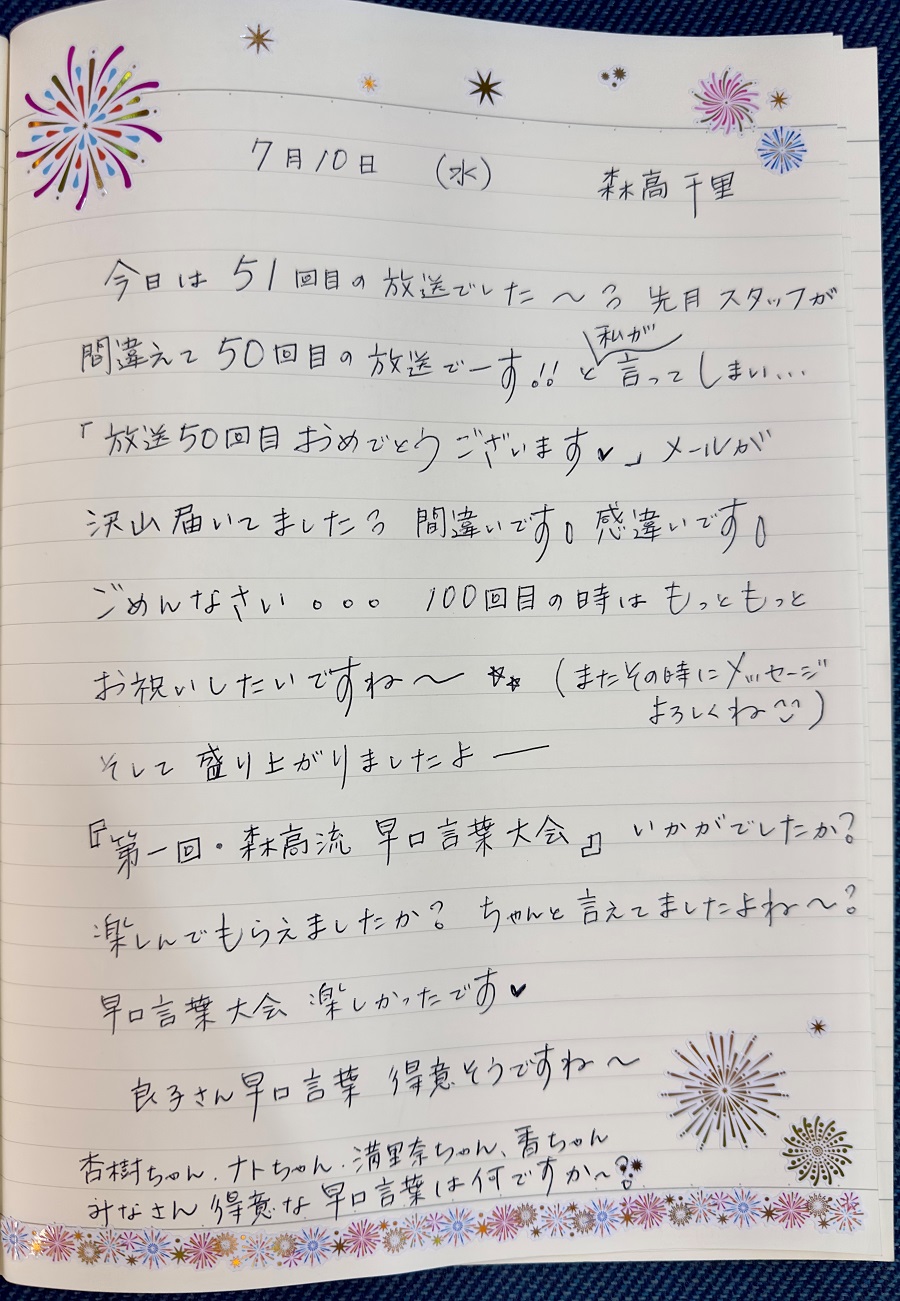 7月10日 (水) 森高千里
今日は51回目の放送でした〜? 先月スタッフが
間違えて50回目の放送でーす!! と私が言ってしまい...
「放送50回目おめでとうございます♥」メールが
沢山届いてました? 間違いです。感違いです。
ごめんなさい。。。 100回目の時はもっともっと
お祝いしたいですね〜 ☆☆ (またその時にメッセージ
よろしくね)
そして盛り上がりましたよー
『第一回・森高流 早口言葉大会』いかがでしたか?
楽しんでもらえましたか? ちゃんと言えてましたよね〜?
早口言葉大会 楽しかったです♥
良子さん早口言葉 得意そうですね〜
杏樹ちゃん、ナトちゃん、満里奈ちゃん、香ちゃん
みなさん得意な早口言葉は何ですか〜?